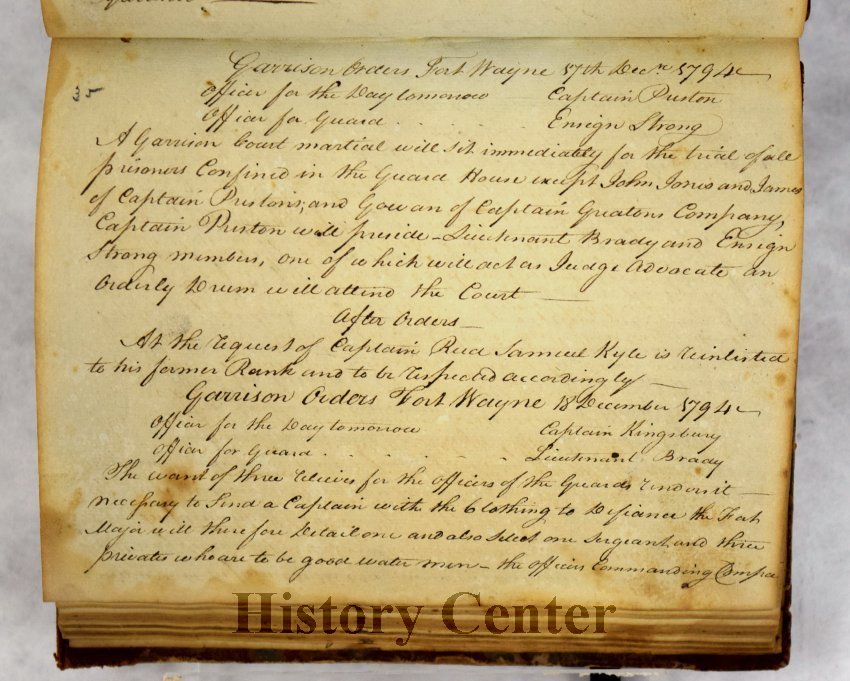 35
Garrison Orders Fort Wayne 17th Decr. 1794
Officer for the Day tomorrow Captain Preston
Officer for Guard . . . . . Ensign Strong
A Garrison Court martial will sit immediately for the trial of all
prisoners Confined in the Guard House except John Jones and James
of Captain Prestons; and Gowan of Captain Greatons Company,
Captain Preston will preside - Lieutenant Brady and Ensign
Strong members, one of which will act as Judge Advocate an
Orderly Drum will attend the Court —
After Orders —
At the request of Captain Reed Samuel Kyle is reinlisted
to his former Rank and to be respected accordingly —
Garrison Orders Fort Wayne 18 December 1794
Officer for the Day tomorrow Captain Kingsbury
Officer for Guard . . . . . . Lieutenant Brady
The want of three relieves for the officers of the Guards renders it —
necessary to Send a Captain with the Clothing to Defiance the Fort
Major will therefore Detail one and also Select one Sergeant and three
privates who are to be good water men - the officers Commanding Compa
History Center